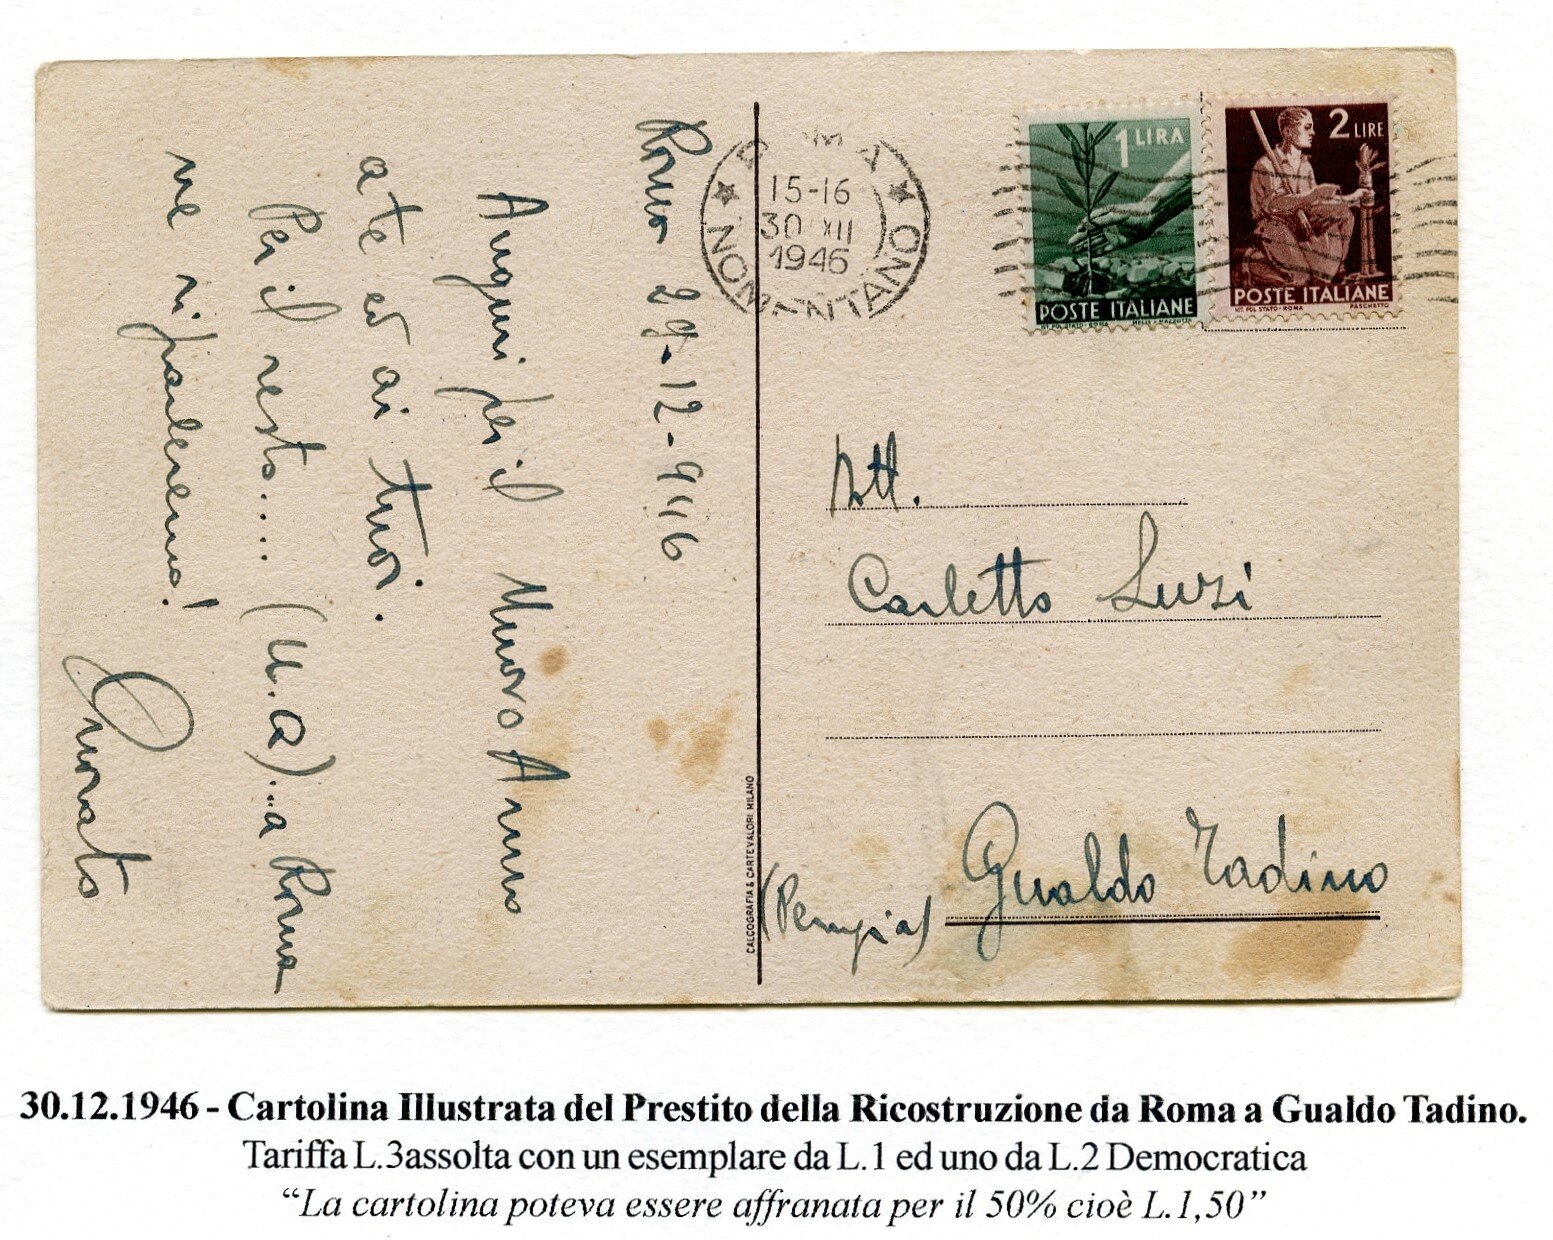 Roma 29-12-946
Auguri per il Nuovo Anno
a te ed ai tuoi.
Per il resto.... (U.A)...a Roma
ne riparleremo!
Onorato
ROMA
NOMENTANO
15-16
30 XII
1946
1 LIRA
POSTE ITALIANE
IST. POL. STATO - ROMA
2 LIRE
POSTE ITALIANE
IST. POL. STATO - ROMA PASCHETTO
Carletto Luzi
Gualdo Tadino
(Perugia)
CALCOGRAFIA & CARTEVALORI MILANO
30.12.1946 - Cartolina Illustrata del Prestito della Ricostruzione da Roma a Gualdo Tadino.
Tariffa L.3assolta con un esemplare da L.1 ed uno da L.2 Democratica
“La cartolina poteva essere affranata per il 50% cioè L.1,50”